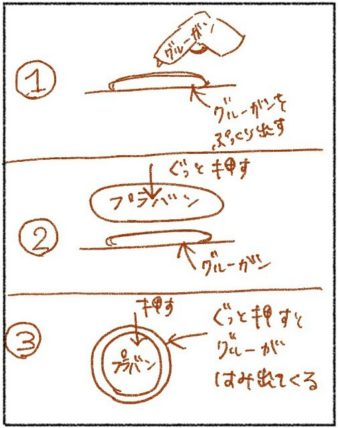 ①
グルーガン
グルーガンを
ぷっくり出す
②
ぐっと押す
プラバン
グルーガン
③
押す
プラバン
ぐっと押すと
グルーが
はみ出てくる